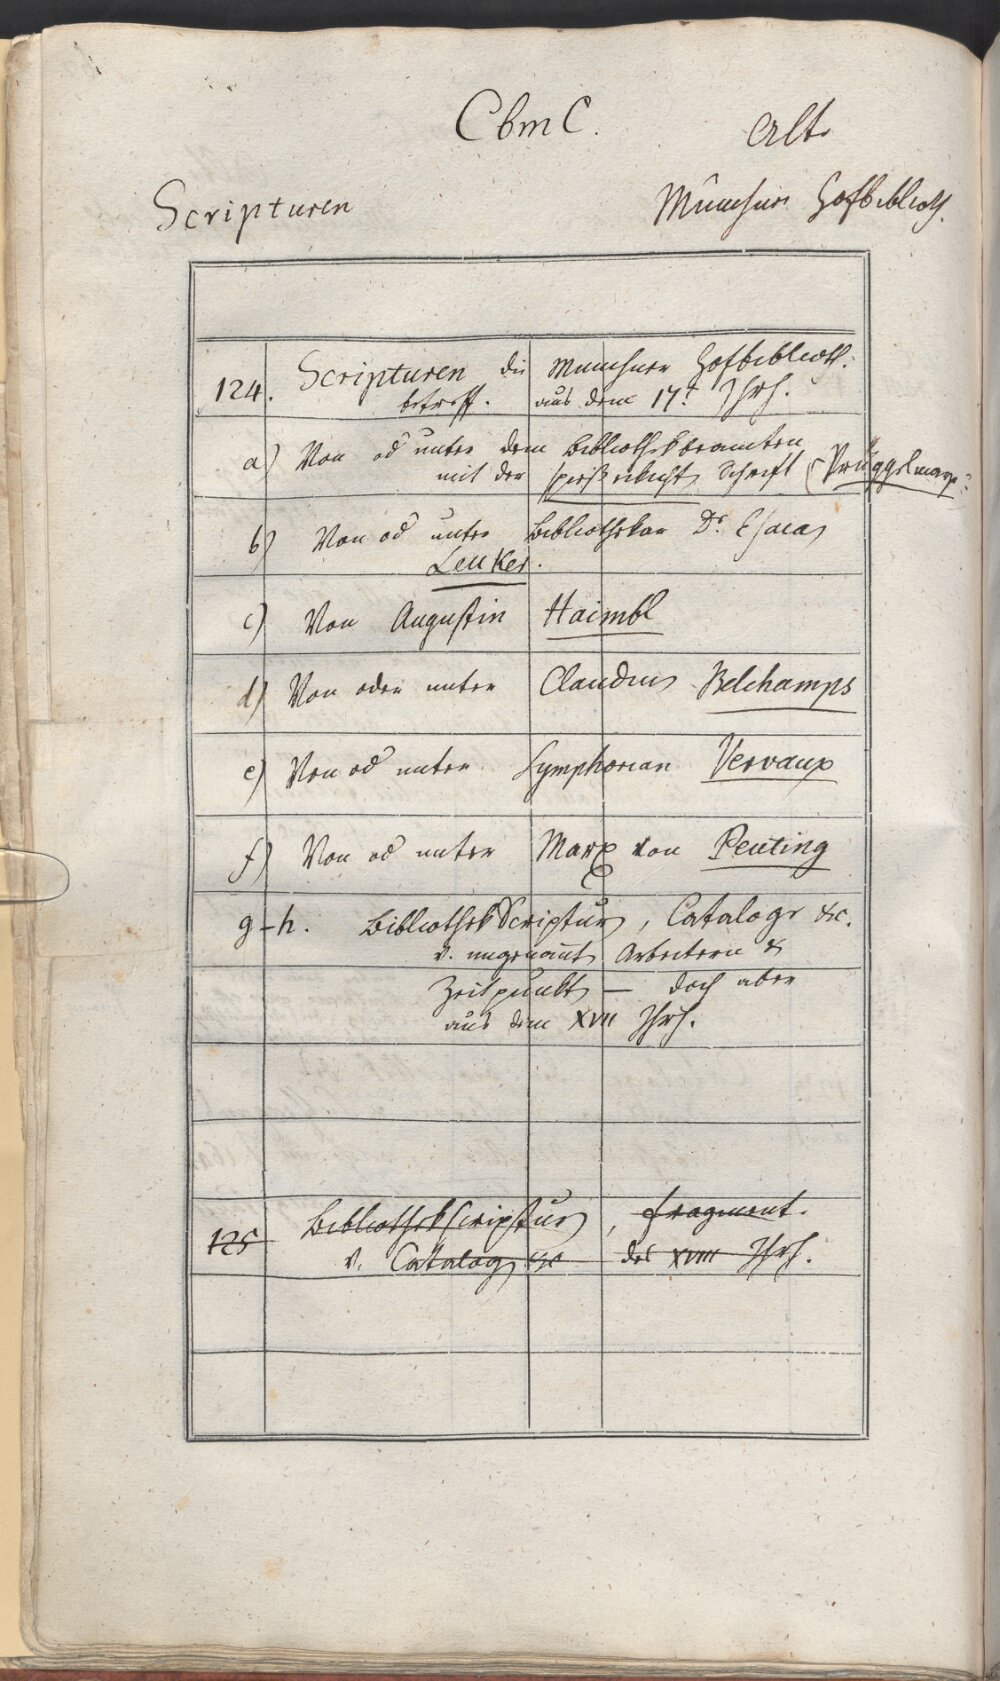 CbmC.
Alte
Scripturen
Münchner Hofbiblioth.
124. Scripturen die Münchner Hofbiblioth.
betreff. aus dem 17t Jhrh.
a) Von od unter dem Bibliothekbeamten
mit der spießeckicht Schrift (Prüggelmayr?
b) Von od unter Bibliothekar Dr. Esaias
Leuker.
c) Von Augustin Haimbl
d) Von oder unter Claudius Belchamps
e) Von od unter Symphorian Vervaux
f) Von od unter Marx von Peuting
g-h. BibliothekScripturen, Cataloge &c.
v. ungenannt Arbeitern &
Zeitpunkts – doch aber
aus dem XVII Jhrh.
125 Bibliothekscripturen, fragment.
v. Catalog &c des XVIII Jhrh.